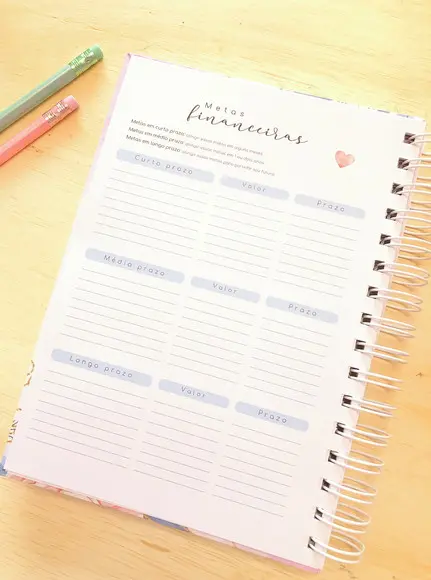 Metas
financeiras
Metas em curto prazo
Metas em médio prazo
Metas em longo prazo
Curto prazo Valor Prazo
Médio prazo Valor Prazo
Longo prazo Valor Prazo